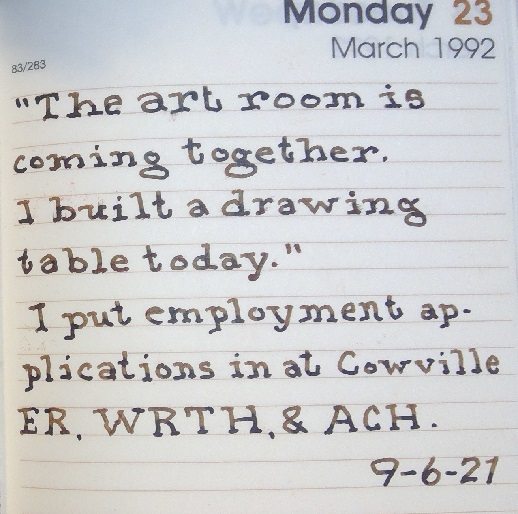 Monday 23
March 1992
83/283
"The art room is
coming together.
I built a drawing
table today."
I put employment ap-
plications in at Cowville
ER, WRTH, & ACH.
9-6-21